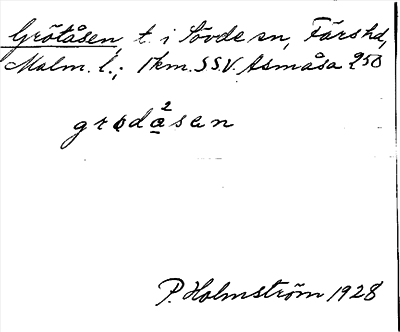 Grötåsen, t. i Sövde sn, Färs hd,
Malm. l.; 1 km. S.S.V. Asmåsa 250
gröda2sen
P. Holmström 1928